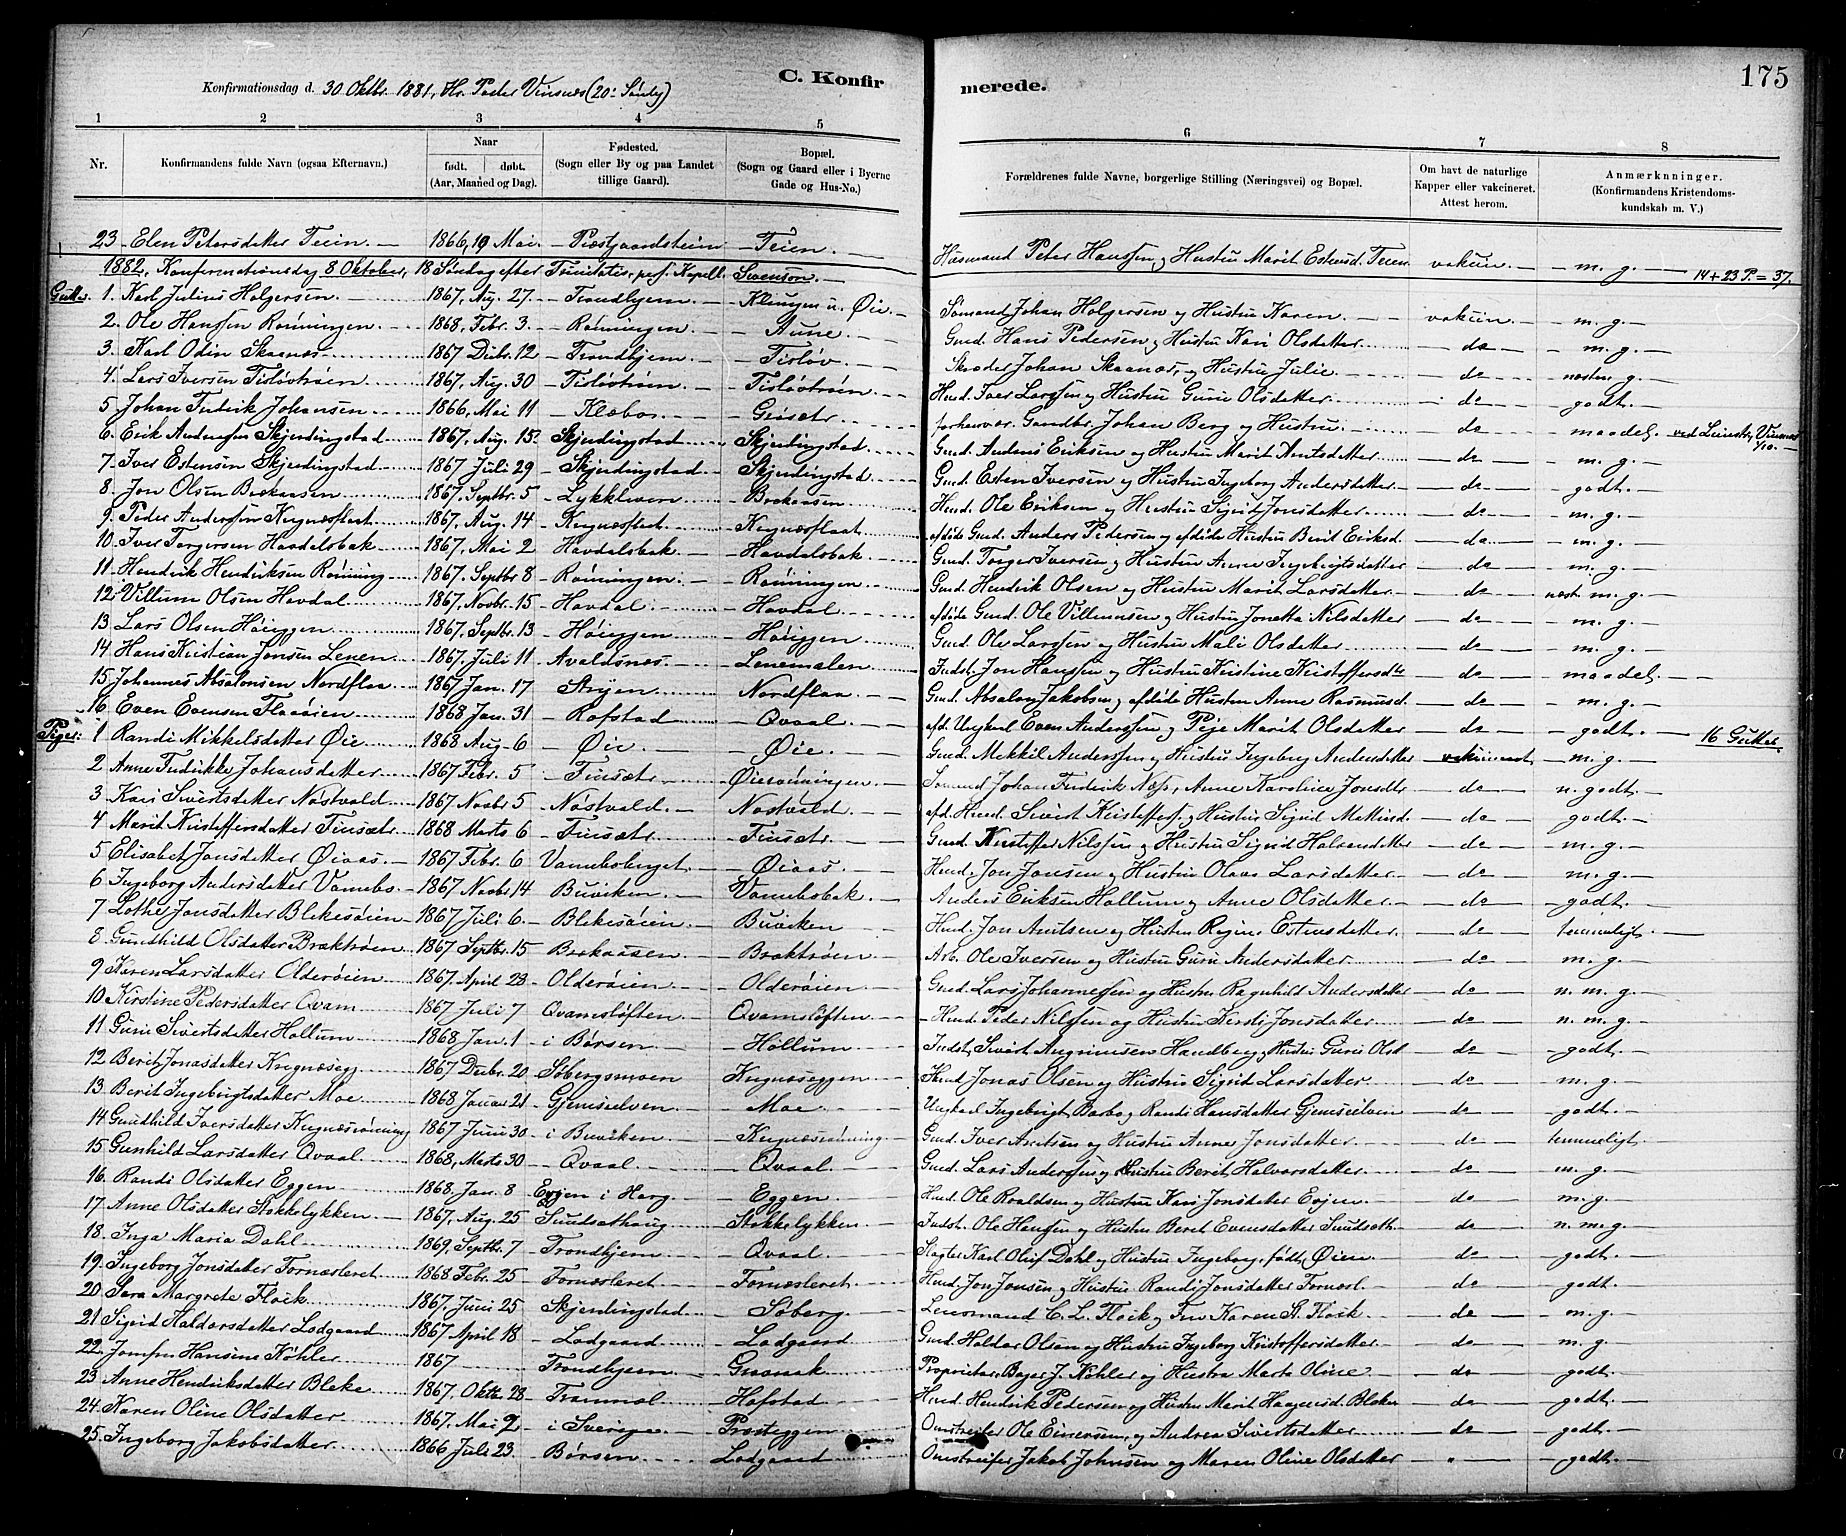 175
C. Konfirmerede.
Konfirmationsdag d. 30 Oktbr. 1881, Hr. Peder Vinsnes (20: Søndg)
1 2 3 4 5 6 7 8
Nr. Konfirmandens fulde Navn (ogsaa Efternavn.) Naar født. døbt. (Aar, Maaned og Dag). Fødested. (Sogn eller By og paa Landet tillige Gaard). Bopæl. (Sogn og Gaard eller i Byerne Gade og Hus-No.) Forældrenes fulde Navne, borgerlige Stilling (Næringsvei) og Bopæl. Om havt de naturlige Kapper eller vakcineret. Attest herom. Anmærkninger. (Konfirmandens Kristendomskundskab m. V.)
23 Elen Petersdatter Teien 1866, 19 Mai. Præstgaardsteien Teien Husmand Peter Hanssen og Hustru Marit Estensd. Teien vakcin. m. g. 14 + 23 P. = 37.
1882, Konfirmationsdag 8 Oktober, 18 Søndag efter Trinitatis, pers. Kapell. Svenson
Gutter. 1. Karl Julius Holgersen 1867, Aug. 27. Trondhjem Klungen u. Øie Sømand Johan Holgersen og Hustru Karen vakcin. m. g.
2. Ole Hanssen Rønningen 1868, Febr. 3. Rønningen Aune Gmd. Hans Pedersen og Hustru Kari Olsdatter do m. g.
3. Karl Odin Skaanæs 1867 Decbr. 12 Trondhjem Tisløv Skræder Johan Skaanæs, og Hustru Julie do næsten g.
4. Lars Iversen Tisløvtrøen 1867, Aug. 30 Tisløvtrøen Tisløvtrøen Hmd. Iver Larssen og Hustru Guru Olsdatter do godt.
5 Johan Fredrik Johansen 1866, Mai 11 Klæbo Geisætr forhenvær. Gaardbr. Johan Berg og Hustru do maadel. ved Leinstr. Vinsnes
6. Erik Anderssen Skjerdingstad 1867, Aug. 15 Skjerdingstad Skjerdingstad Gmd. Anders Eriksen og Hustru Marit Arntsdatter do m. g.
7. Iver Estensen Skjerdingstad 1867 Juli 29 Skjerdingstad Skjerdingstad Gmd. Esten Iversen og Hustru Ingeborg Andersdatter do godt.
8 Jon Olsen Brekaasen 1867, Septbr. 5 Lykkleven Brekaasen Hmd. Ole Eriksen og Hustru Sigrid Jonsdatter do m. g.
9. Peder Anderssen Kregnæsflaat 1867, Aug. 14 Kregnæsflaat Kregnæsflaat afdøde Gmd. Anders Pedersen og afdøde Hustru Berit Eriksd. do m. g.
10. Iver Torgersen Havdalsbak 1867, Mai 2 Havdalsbak Havdalsbak Gmd. Torger Iversen og Hustru Anne Ingebrigtsdatter do m. g.
11. Hendrik Hendriksen Rønning 1867. Septbr 8 Rønningen. Rønningen Gmd. Hendrik Olsen og Hustru Marit Larsdatter do næst m. g.
12. Villum Olsen Havdal 1867, Novbr. 15 Havdal Havdal afdøde Gmd. Ole Villumsen og Hustru Jonetta Nilsdatter do m. g.
13. Lars Olsen Høiggen 1867, Septbr. 13 Høiggen Høiggen Gmd. Ole Larssen og Hustru Mali Olsdatter do m. g.
14 Hans Kristian Jonsen Lenen 1867, Juli 11 Avaldsnes Lenemælen Indst. Jon Hanssen og Hustru Kristine Kristoffersdtr maadel.
15. Johannes Absalonsen Nordflaa 1867 Jan. 17 Strøen Nordflaa Gmd. Absalon Jakobsen og afdøde Hustru Anne Rasmusd. do m. g.
16. Even Evensen Flaaøien 1868 Jan. 31 Rofstad Qvaal afd. Ungkarl Even Anderssen og Pige Marit Olsdatter do godt. 16 Gutter
Piger: 1 Randi Mikkelsdatter Øie 1868 Aug. 6 Øie Øie Gmd. Mekkil Anderssen og Hustru Ingeborg Andersdatter vakcineret m. g.
2 Anne Fredrikke Johansdatter 1867 Febr. 5 Finsætr Øierønningen Sømand Johan Frederik Næss, Anne Karoline Jonsdtr do n. godt.
3 Kari Sivertsdatter Nøstvold 1867 Novbr. 5 Nøstvold. Nøstvold afd. Hmd. Sivert Kristoffers. og Hustru Sigrid do godt.
4 Marit Kristoffersdatter Finsætr 1868 Marts 6 Finsætr Finsætr Gmd. Kristoffer Nilssen og Hustru Sigrid Halvorsdatter do m. g.
5 Elisabet Jonsdatter Øiaas. 1867 Febr. 6 Øiaas Hmd. Jon Jonsen og Hustru Olava Larsdatter do m. g.
6 Ingeborg Andersdatter Vammebo. 1867 Novbr 14 Buviken Vammebobak Anders Eriksen Hollum og Anne Olsdatter do godt.
7 Lothe Jonsdatter Blekesøien 1867 Juli 6. Blekesøien Buviken Hmd. Jon Arntsen og Hustru Regine Estensdatter do temmeligt.
8 Gundhild Olsdatter Bræktrøen 1867 Septbr. 15 Brekaasen Bræktrøen Arb. Ole Iversen og Hustru Guru Andersdatter do m. g.
9 Karen Larsdatter Olderøien 1867. April 28 Olderøien Olderøien Gmd. Lars Johannessen og Hustru Ragnhild Andersdatter do n. m. g.
10. Kirstine Pedersdatter Qvam 1867 Juli 7 Qvamsløften Qvamsløften Hmd. Peder Nilssen og Hustru Kersti Jonsdatter do n. m. g.
11 Guru Sivertsdatter Hollum 1868 Jan. 1 i Børsen Hollum Indst. Sivert Handberg og Hustru Guru Olsd do godt.
12 Berit Jonasdatter Kregnæsegg 1867 Decbr. 20 Søbergsmoen Kregnæseggen Hmd Jonas Olsen og Hustru Sigrid Larsdatter do m. g.
13. Berit Ingebrigtsdatter Moe 1868 Januar 21 Gjemselven Moe Ungkarl Ingebrigt Barbo og Randi Hansdatter Gjemselven do godt.
14 Gundhild Iversdatter Kregnæsrønning 1867 Juni 30 i Buviken Kregnæsrønning Gmd. Iver Arntsen og Hustru Anne Jonsdatter do temmeligt.
15 Gunhild Larsdatter Qvaal 1868, Marts 30 Qvaal Qvaal Gmd. Lars Anderssen og Hustru Berit Halvorsdatter do m. g.
16. Randi Olsdatter Eggen 1868 Jan. 8 Evjen i Horg Eggen Hmd. Ole Roaldsen og Hustru Kari Jonsdatter Evjen do m. g.
17. Anne Olsdatter Stokkelykken 1867. Aug. 25 Sundsethaug Stokkelykken Indst. Ole Hanssen og Hustru Beret Evensdatter Sundseth do n. m. g.
18. Inga Maria Dahl 1869. Septbr. 7 Trondhjem Qvaal Slagter Karl Oluf Dahl og Hustru Ingeborg, født Øien do godt.
19. Ingeborg Jonsdatter Fornæsleret 1868 Febr. 25 Fornæsleret Fornæsleret. Hmd. Jon Jonsen og Hustru Randi Jonsdatter Fornæsl. do godt.
20 Sara Margrete Floek 1867. Juni 25 Skjerdingstad Søberg Lensmand C. L. Floek og Fru Karen St. Floek do m. g.
21 Sigrid Haldorsdatter Lodgaard 1867 April 18 Lodgaard Lodgaard Gmd. Haldor Olsen og Hustru Ingeborg Kristoffersdatter do m. g.
22. Jomfru Hansine Köhler 1867 Trondhjem Graanak Proprietær, Bager J. Köhler og Hustru Marta Oline do godt.
23 Anne Hendriksdatter Bleke 1867, Oktbr 28 Tranmæl Hofstad Hmd. Hendrik Pedersen og Hustru Marit Haagensd. Bleken do godt.
24. Karen Oline Olsdatter 1867. Mai 2 i Sverige Prosteggen Omstreifer Ole Einersen, og Andrea Sivertsdatter do godt.
25. Ingeborg Jakobsdatter 1866 Juli 23 Børsen Lodgaard Omstreifer Jakob Johnsen og Maren Oline Olsdatter " godt.